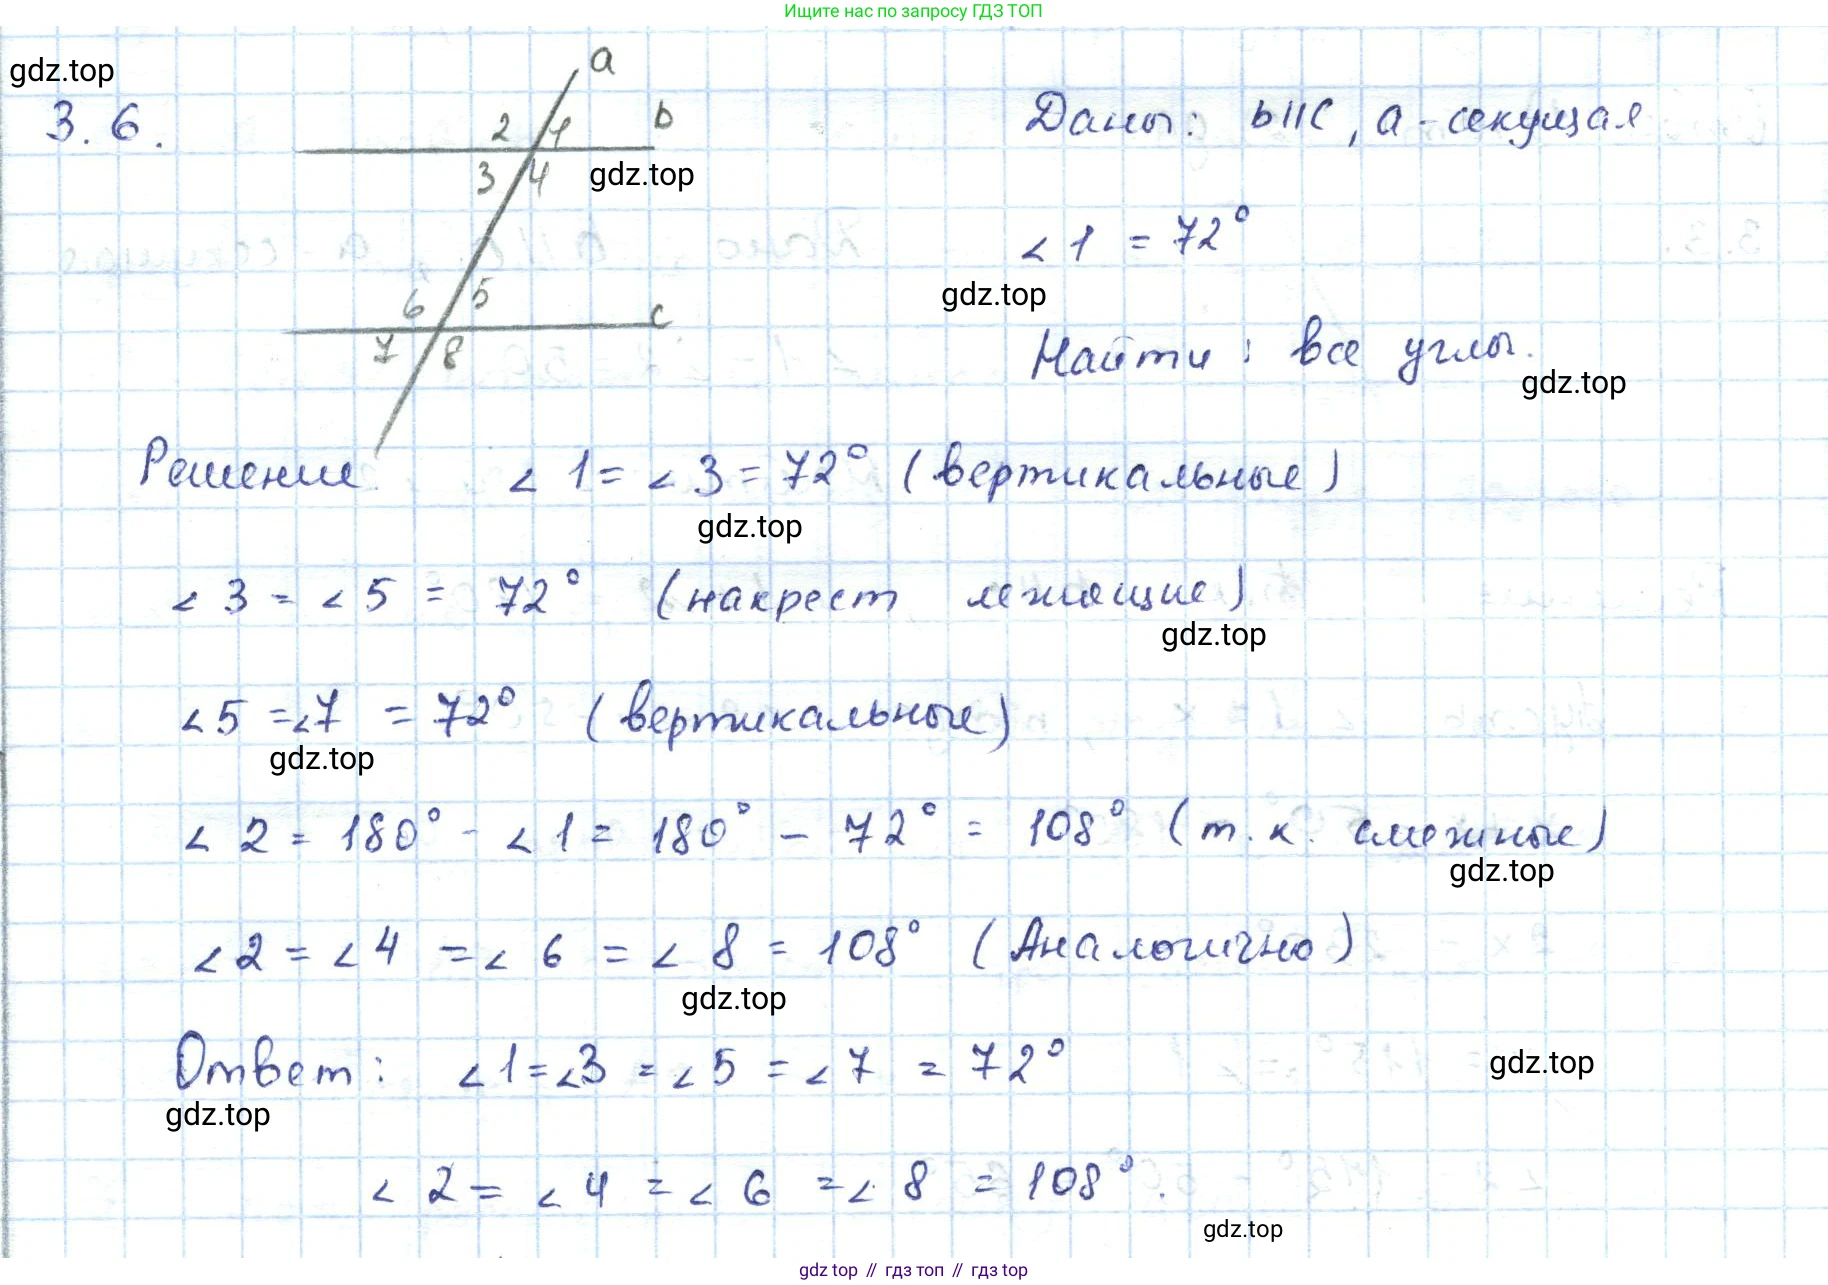 Ищите нас по запросу ГДЗ ТОП
gdz.top
3.6.
a
2 1 b
3 4
gdz.top
6 5
c
7 8
Даны: b||c, a - секущая
∠1 = 72°
gdz.top
Найти: все углы.
gdz.top
Решение ∠1 = ∠3 = 72° (вертикальные)
gdz.top
∠3 = ∠5 = 72° (накрест лежащие)
gdz.top
∠5 = ∠7 = 72° (вертикальные)
gdz.top
∠2 = 180° - ∠1 = 180° - 72° = 108° (т.к. смежные)
gdz.top
∠2 = ∠4 = ∠6 = ∠8 = 108° (Аналогично)
gdz.top
Ответ: ∠1 = ∠3 = ∠5 = ∠7 = 72°
gdz.top
gdz.top
∠2 = ∠4 = ∠6 = ∠8 = 108°.
gdz.top
gdz top // гдз топ // гдз top